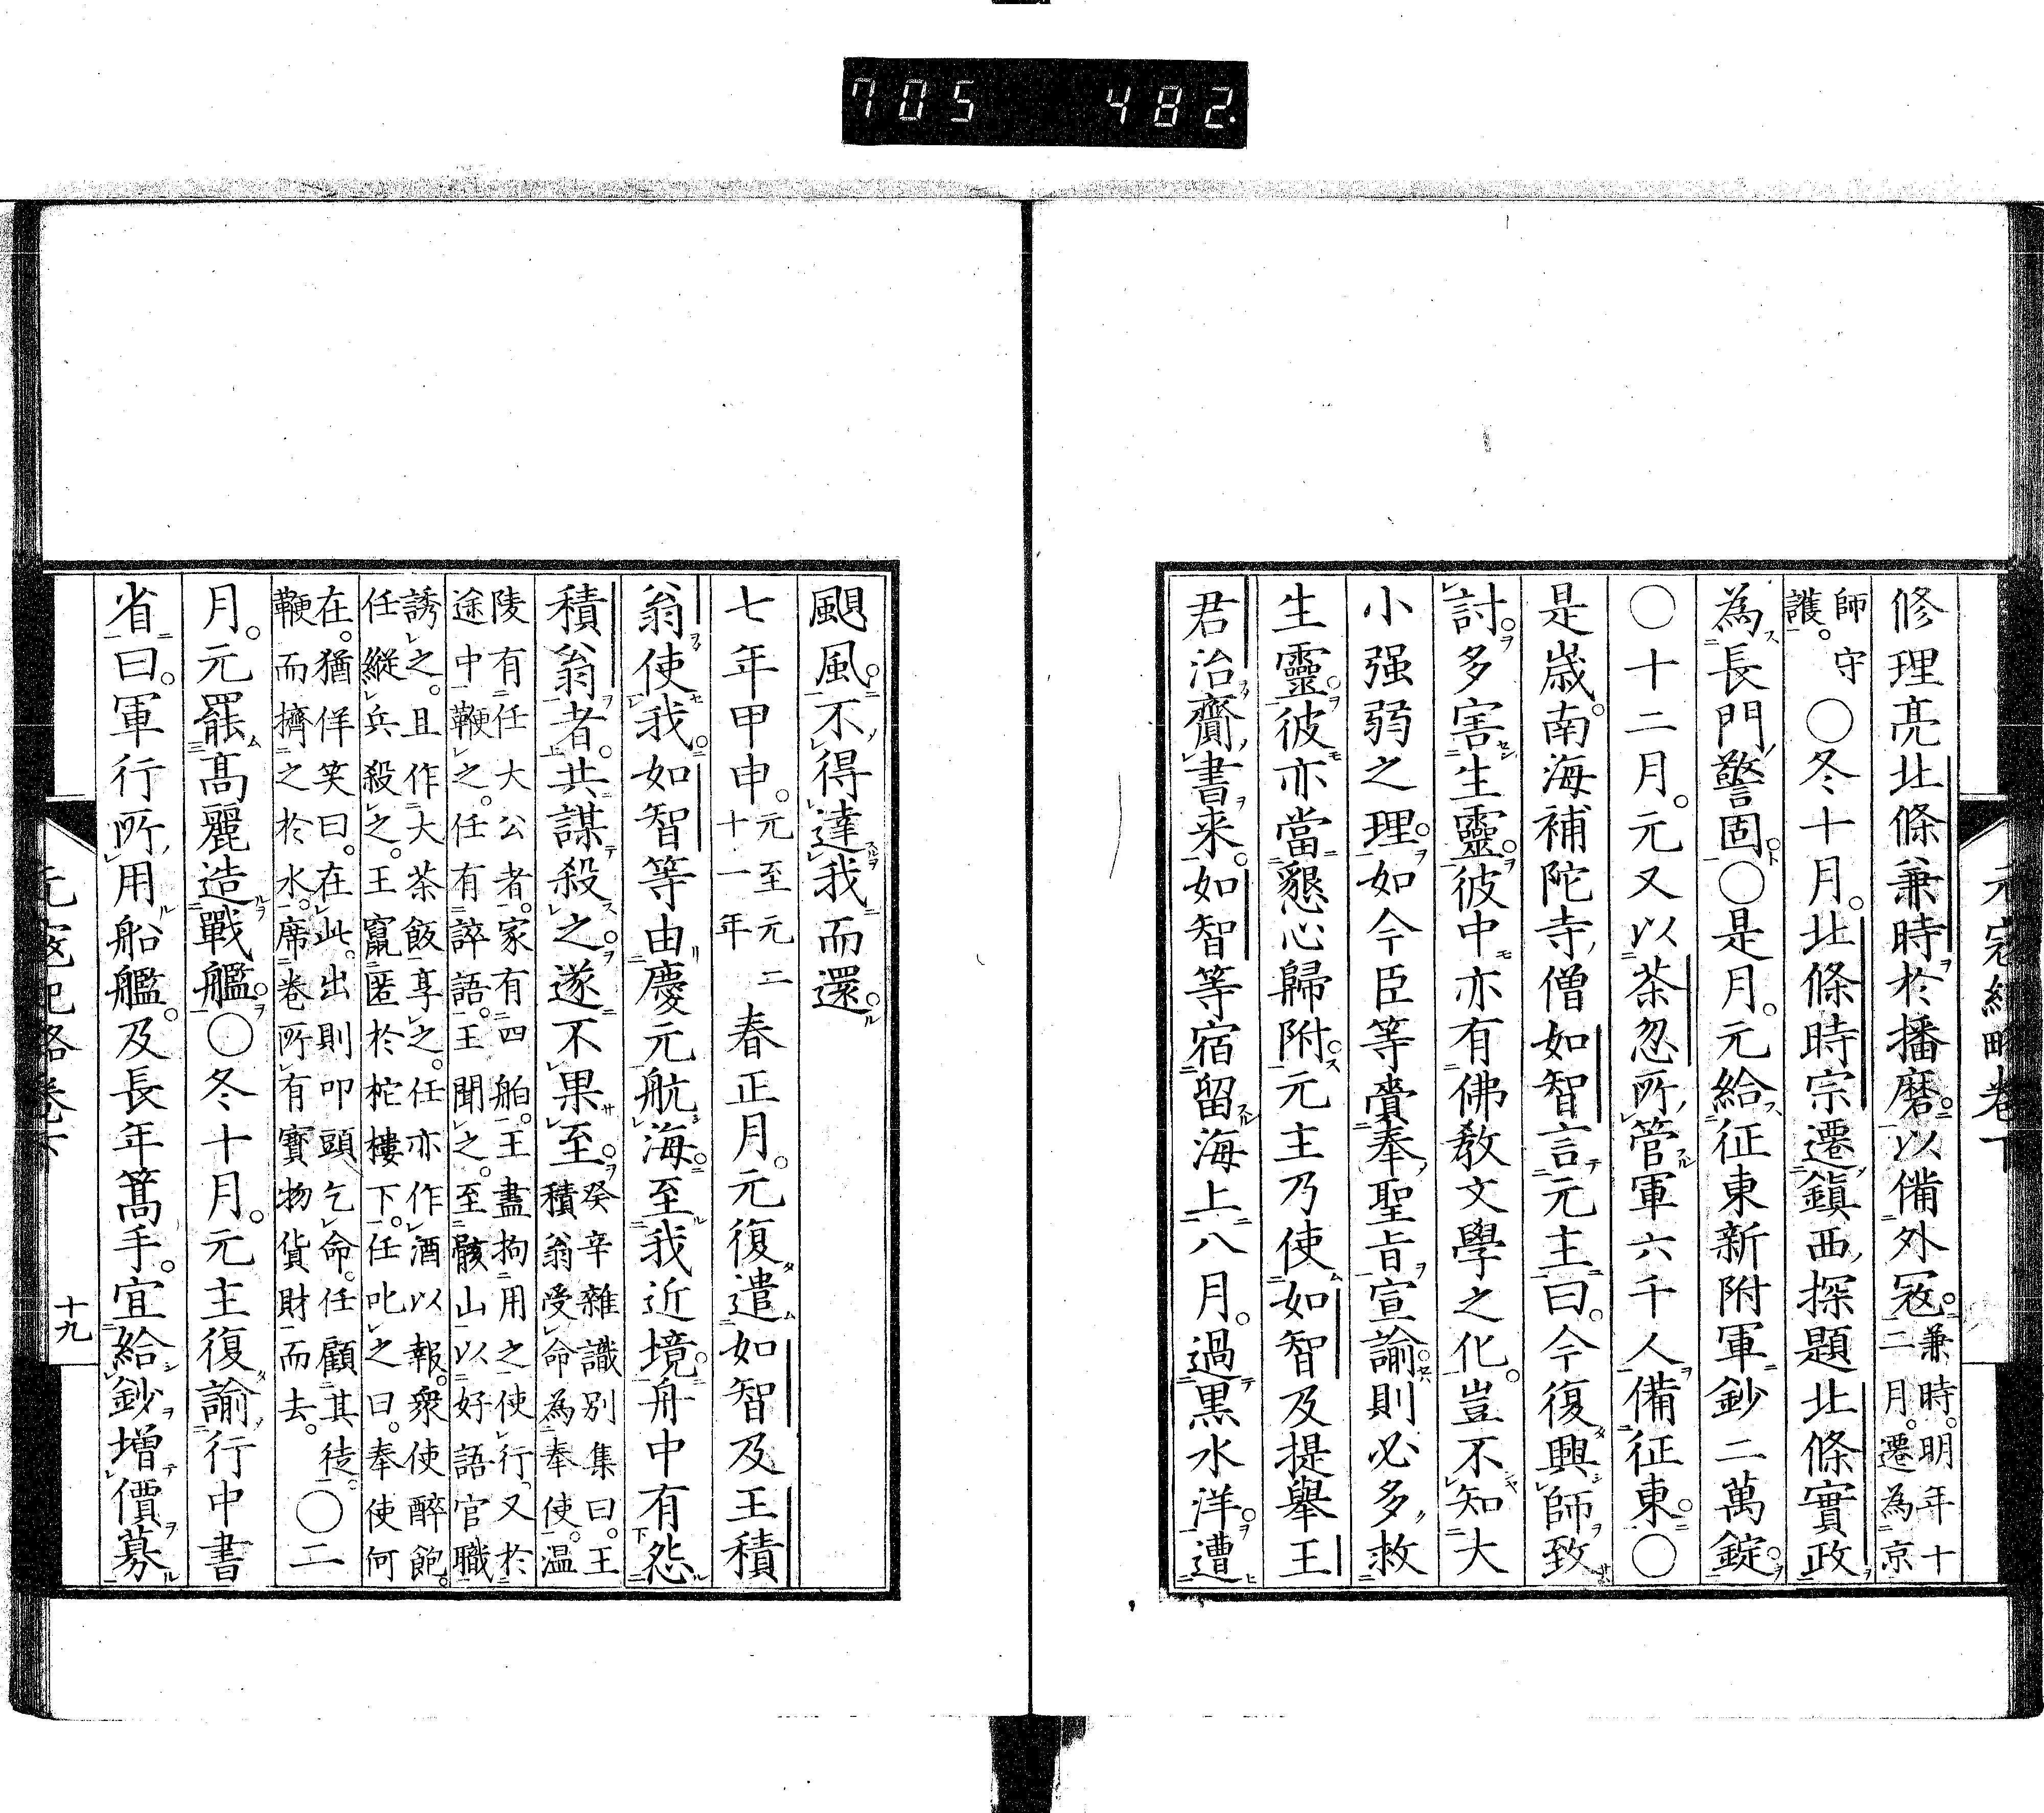 705 482
元寇紀略卷下
修理亮北條兼時於播磨以備外寇兼時明年十二月遷為京
師守護○冬十月北條時宗遷鎮西探題北條實政
為長門警固○是月元給征東新附軍鈔二萬錠
○十二月元又以茶忽所管軍六千人備征東○
是歲南海補陀寺僧如智言元主曰今復興師致
討多害生靈彼中亦有佛教文學之化豈不知大
小强弱之理如今臣等賫奉聖旨宣諭則必多救
生靈彼亦當懇心歸附元主乃使如智及提舉王
君治齎書来如智等宿留海上八月過黒水洋遭
颶風不得達我而還
七年甲申元至元二十一年春正月元復遣如智及王積
翁使我如智等由慶元航海至我近境舟中有怨
積翁者共謀殺之遂不果至癸辛雜識別集曰王積翁受命為奉使温
陵有任大公者家有四舶王盡拘用之使行又於途中鞭之任有誶語王聞之至骸山以好語官職
誘之且作大茶飯享之任亦作酒以報衆使醉飽任縱兵殺之王竄匿於柁樓下任叱之曰奉使何
在猶佯笑曰在此出則叩頭乞命任顧其徒鞭而擠之於水席卷所有寳物貨財而去○二
月元罷高麗造戰艦○冬十月元主復諭行中書
省曰軍行所用船艦及長年篙手宜給鈔增價募
元寇紀略卷下
十九